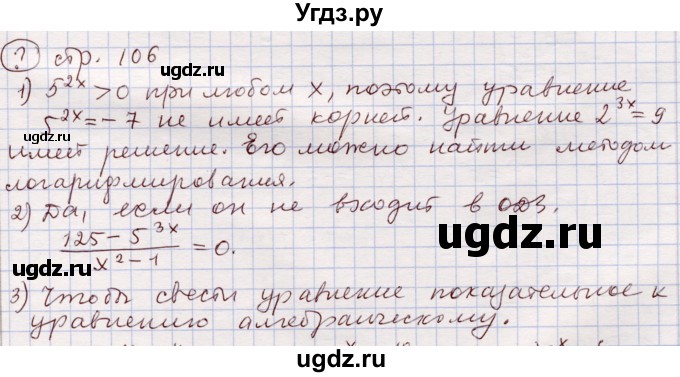 Угдз.ру
? стр. 106
1) 5^{2x} > 0 при любом x, поэтому уравнение
5^{2x} = - 7 не имеет корней. Уравнение 2^{3x} = 9
имеет решение. Его можно найти методом
логарифмирования.
2) Да, если он не входит в ОДЗ.
(125 - 5^{3x}) / (x² - 1) = 0.
3) Чтобы свести уравнение показательное к
уравнению алгебраическому.
ugdz.ru
ugdz.ru
ugdz.ru
ugdz.ru
ugdz.ru
ugdz.ru
ugdz.ru
ugdz.ru
ugdz.ru
©ugdz.ru